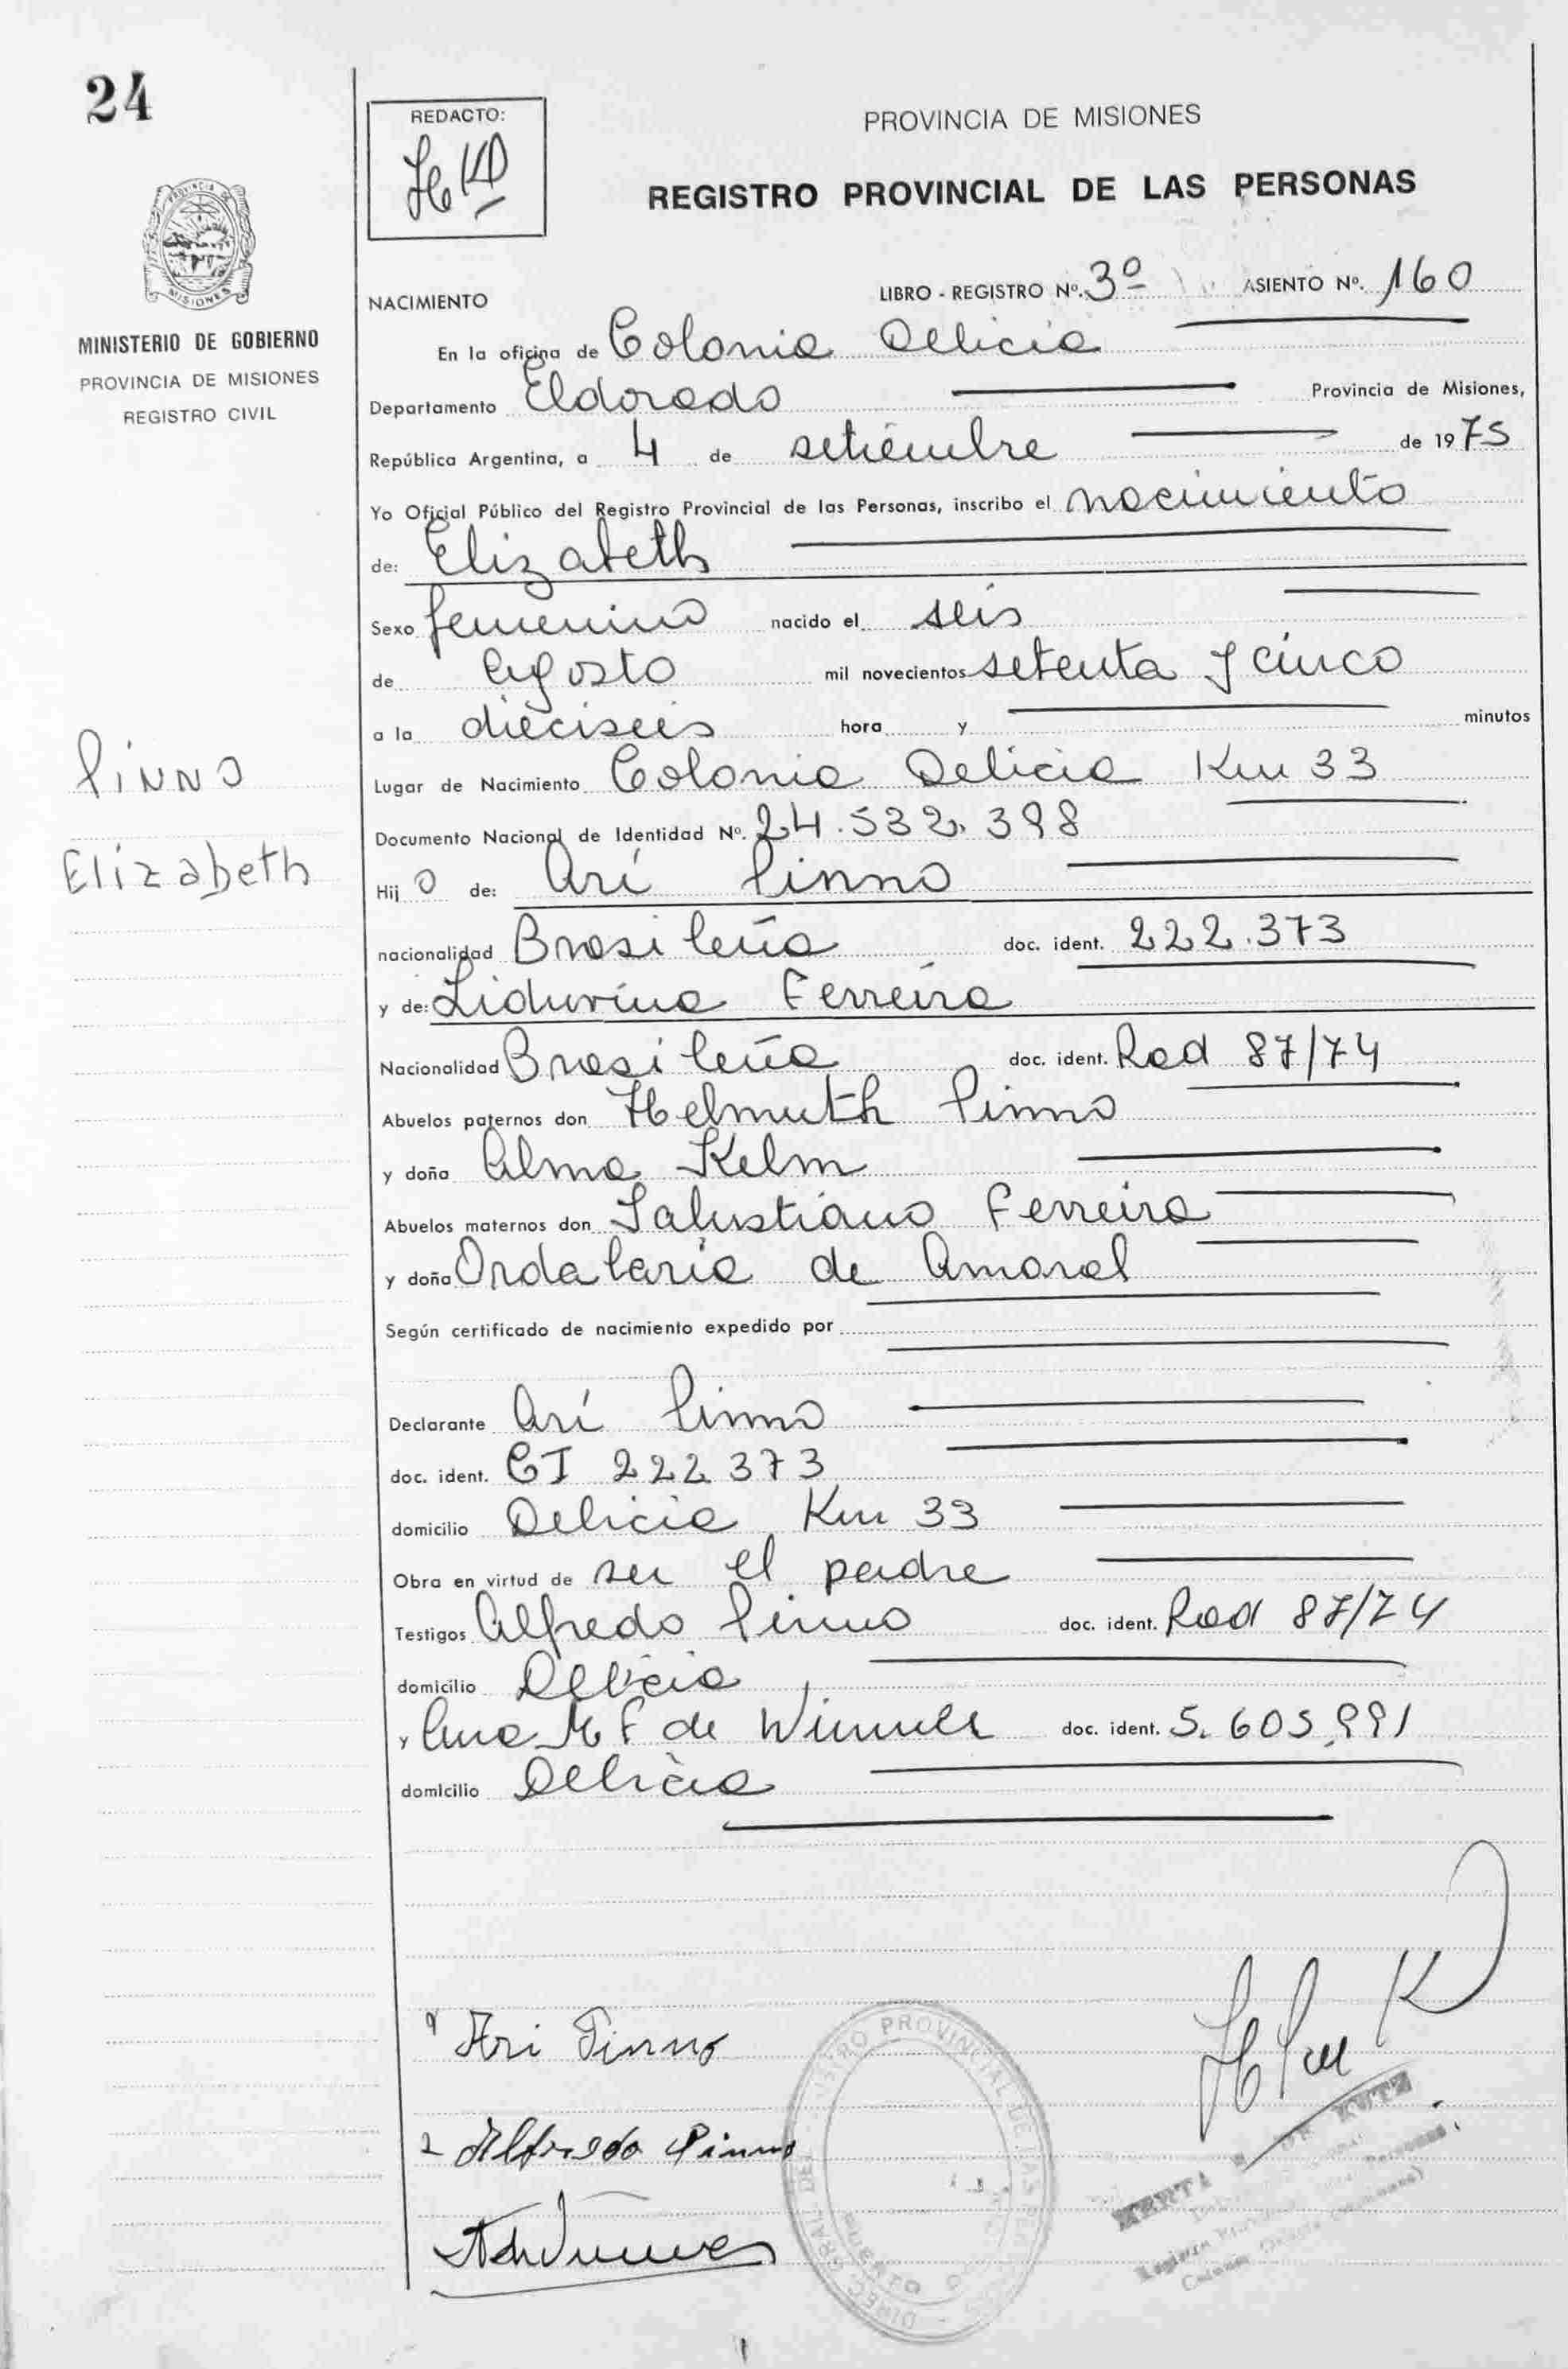 24
REDACTO:
PROVINCIA DE MISIONES
REGISTRO PROVINCIAL DE LAS PERSONAS
MISIONES
MINISTERIO DE GOBIERNO
PROVINCIA DE MISIONES
REGISTRO CIVIL
NACIMIENTO
LIBRO - REGISTRO Nº. 3º ASIENTO Nº. 160
En la oficina de Colonia Delicia
Departamento Eldorado Provincia de Misiones,
República Argentina, a 4 de setiembre de 1975
Yo Oficial Público del Registro Provincial de las Personas, inscribo el nacimiento
de: Elizabeth
Sexo femenino nacido el seis
de agosto mil novecientos setenta y cinco
a la dieciseis hora y minutos
Pinno
Elizabeth
Lugar de Nacimiento Colonia Delicia Km 33
Documento Nacional de Identidad Nº. 24.532.398
Hij o de: Arí Pinno
nacionalidad Brasileña doc. ident. 222.373
y de: Lidurina Ferreira
Nacionalidad Brasileña doc. ident. Rad 87/74
Abuelos paternos don Helmuth Pinno
y doña Alma Kelm
Abuelos maternos don Salustiano Ferreira
y doña Ordalaria de Amaral
Según certificado de nacimiento expedido por
Declarante Arí Pinno
doc. ident. CI 222 373
domicilio Delicia Km 33
Obra en virtud de ser el padre
Testigos Alfredo Pinno doc. ident. Rad 87/74
domicilio Delicia
y Ana M F de doc. ident. 5.605.991
domicilio Delicia
Ari Pinno
2 Alfredo Pinno